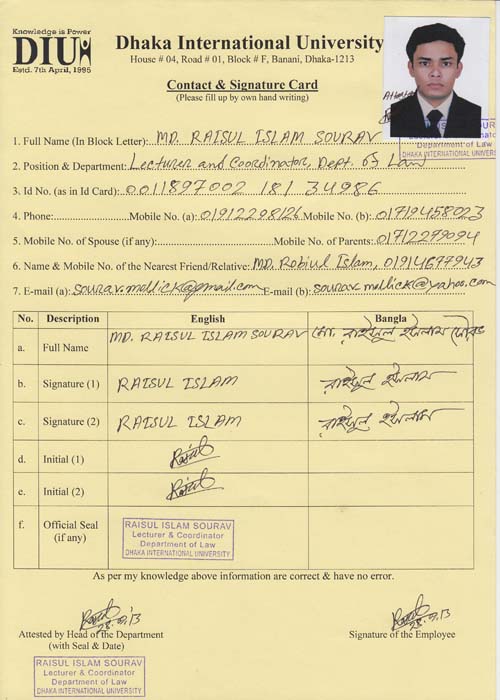 Knowledge is Power
DIU
Estd. 7th April, 1995
Dhaka International University
House # 04, Road # 01, Block # F, Banani, Dhaka-1213
Contact & Signature Card
(Please fill up by own hand writing)
1. Full Name (In Block Letter): MD. RAISUL ISLAM SOURAV
2. Position & Department: Lecturer and Coordinator, Dept. of Law
DHAKA INTERNATIONAL UNIVERS
3. Id No. (as in Id Card): 0011897002 181 34986
4. Phone: Mobile No. (a): 01912298126 Mobile No. (b): 01719458023
5. Mobile No. of Spouse (if any): Mobile No. of Parents: 01712299094
6. Name & Mobile No. of the Nearest Friend/Relative: MD. Robiul Islam, 01914697943
7. E-mail (a): sourav.mollick@gmail.com E-mail (b): sourav.mollick@yahoo.com
No. Description English Bangla
a. Full Name MD. RAISUL ISLAM SOURAV মো. রাইসুল ইসলাম সৌরভ
b. Signature (1) RAISUL ISLAM রাইসুল ইসলাম
c. Signature (2) RAISUL ISLAM রাইসুল ইসলাম
d. Initial (1) Raisul
e. Initial (2) Raisul
f. Official Seal (if any)
RAISUL ISLAM SOURAV
Lecturer & Coordinator
Department of Law
DHAKA INTERNATIONAL UNIVERSITY
As per my knowledge above information are correct & have no error.
Attested by Head of the Department
(with Seal & Date)
Signature of the Employee
RAISUL ISLAM SOURAV
Lecturer & Coordinator
Department of Law
DHAKA INTERNATIONAL UNIVERSITY